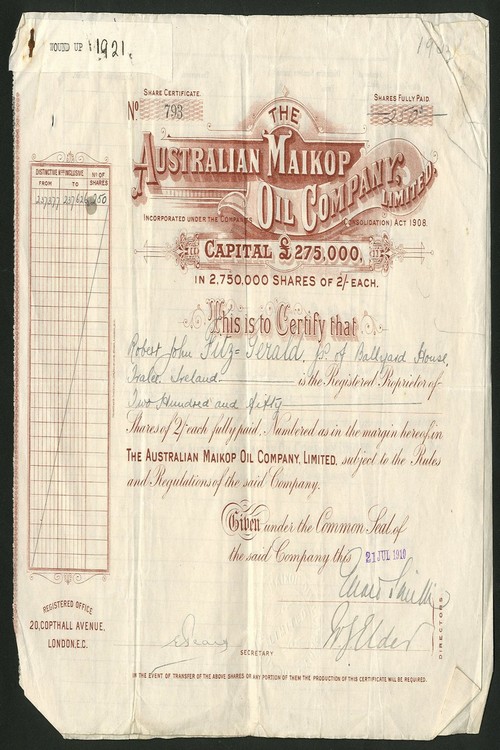 WOUND UP 1921.
SHARE CERTIFICATE.
SHARES FULLY PAID.
No 793
250
THE
AUSTRALIAN MAIKOP
OIL COMPANY, LIMITED.
INCORPORATED UNDER THE COMPANIES (CONSOLIDATION) ACT 1908.
CAPITAL £275,000.
IN 2,750,000 SHARES OF 2/- EACH.
DISTINCTIVE Nos INCLUSIVE
No OF SHARES
FROM TO
250
This is to Certify that
Robert John Fitz=Gerald, of Ballyard House,
Tralee, Ireland is the Registered Proprietor of
Two Hundred and Fifty
Shares of 2/- each fully paid, Numbered as in the margin hereof, in
THE AUSTRALIAN MAIKOP OIL COMPANY, LIMITED, subject to the Rules
and Regulations of the said Company.
Given under the Common Seal of
the said Company this 21 JUL 1910
REGISTERED OFFICE
20, COPTHALL AVENUE,
LONDON, E.C.
W. J. Elder
DIRECTORS
SECRETARY
IN THE EVENT OF TRANSFER OF THE ABOVE SHARES OR ANY PORTION OF THEM THE PRODUCTION OF THIS CERTIFICATE WILL BE REQUIRED.